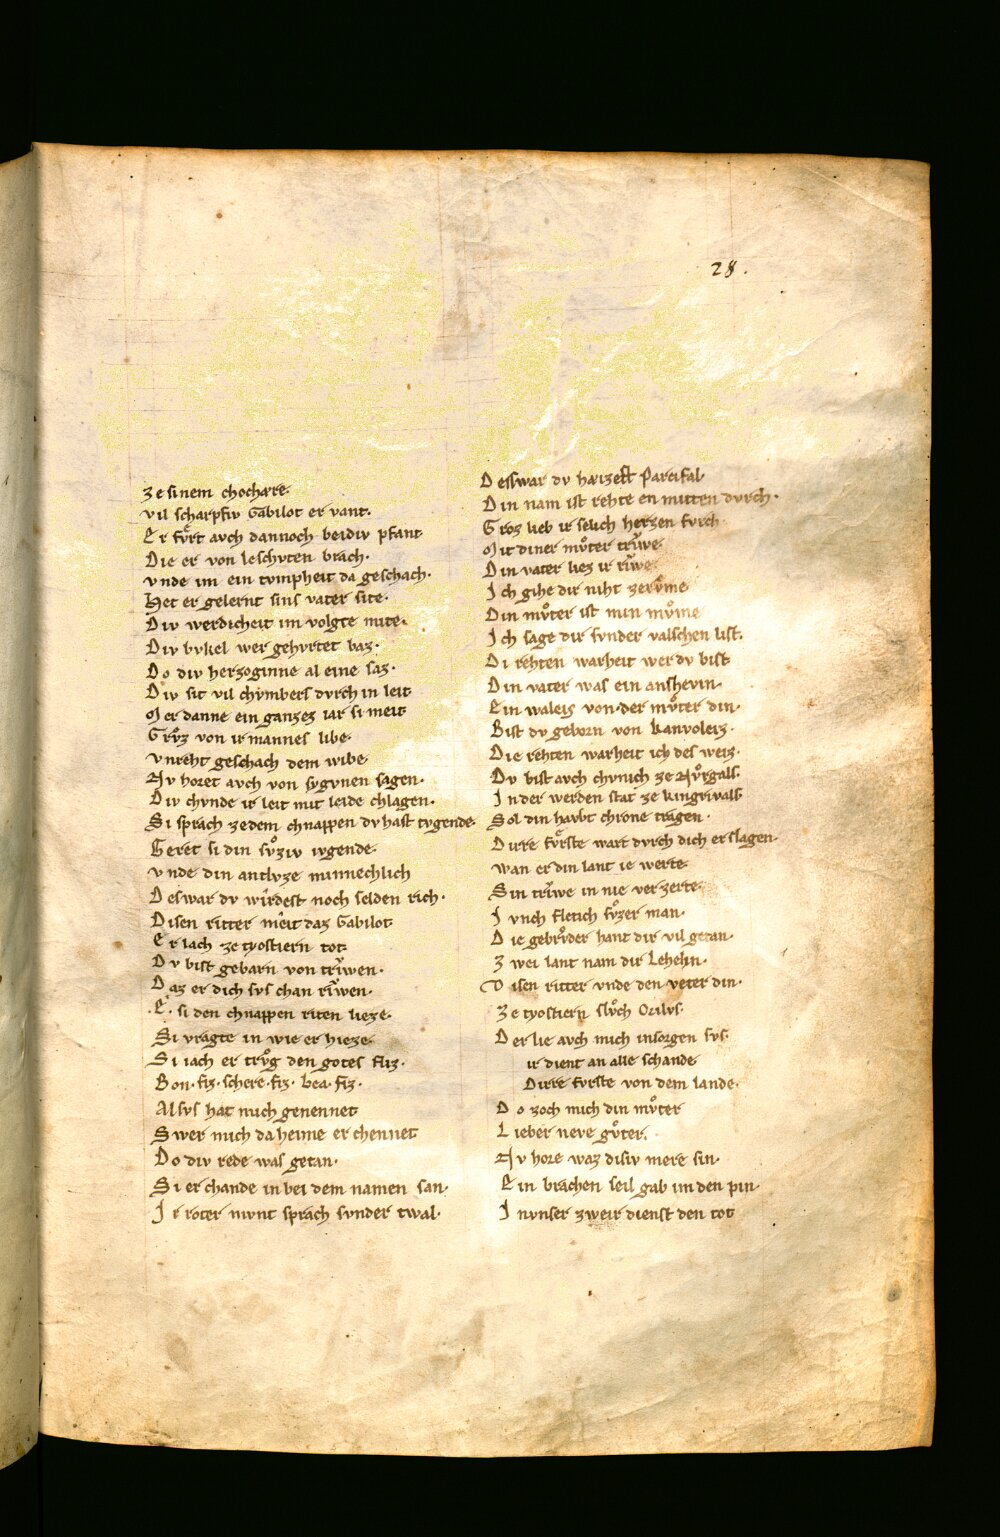 28.
ze sinem chochære·
vil scharpfiv Gabilot er vant·
Er fvͤrt avch dannoch beidiv pfant
Die er von leschvten brach·
vnde im ein tvmpheit da geschach·
Het er gelernt sins vater site·
Div werdicheit im volgte mite·
Div bvkel wer gehvrtet baz·
Do div herzoginne al eine saz·
Div sit vil chvmbers dvrch in leit
Mer danne ein ganzez iar si meit
Grvͦz von ir mannes libe·
vnreht geschach dem wibe·
Nv horet avch von sygvnen sagen·
Div chvnde ir leit mit leide chlagen·
Si sprach ze dem chnappen dv hast tvgende·
Geret si din svͦziv ivgende·
vnde din antlvze minnechlich
Deswar dv wirdest noch selden rich·
Disen ritter meit daz Gabilot
Er lach ze tyostiern tot·
Dv bist gebarn von trîwen·
Daz er dich svs chan rîwen·
·E· si den chnappen riten lieze·
Si vragte in wie er hieze·
Si iach er trvͦg den gotes fliz·
Bon·fiz·schere·fiz·bea·fiz·
Alsvs hat mich genennet
Swer mich da heime erchennet
Do div rede was getan·
Si erchande in bei dem namen san·
Ir roter mvnt sprach svnder twal·
Desswar dv haizest Parcifal
Din nam ist rehte en mitten dvrch·
Groz lieb ir selich herzen fvrch·
Mit diner mvͦter trîwe·
Din vater liez ir rîwe·
Ich gihe dir niht ze rvͦme
Din mvͦter ist min mvͦme
Ich sage dir svnder valschen list·
Di rehten warheit wer dv bist
Din vater was ein anshevin·
Ein waleis von der mvͦter din·
Bist dv geborn von kanvoleiz·
Die rehten warheit ich des weiz·
Dv bist avch chvnich ze Nvͦrgals
In der werden stat ze kingrivals
Sol din havbt chrone tragen·
Dirre fvͤrste wart dvrch dich erslagen·
wan er din lant ie werte·
Sin trîwe in nie verzerte·
Ivnch fletich svͦzer man·
Die gebrvͦder hant dir vil getan·
Zwei lant nam dir Lehelin·
Disen ritter vnde den veter din·
Ze tyostiern slvͦch Orilvs·
Der lie avch mich in sorgen svs·
ir dient an alle schande
Dirre fvrste von dem lande·
Do zoch mich din mvͦter
Lieber neve gvͦter·
Nv hore waz disiv mere sin·
Ein brachen seil gab im den pin·
In vnser zweir dienst den tot